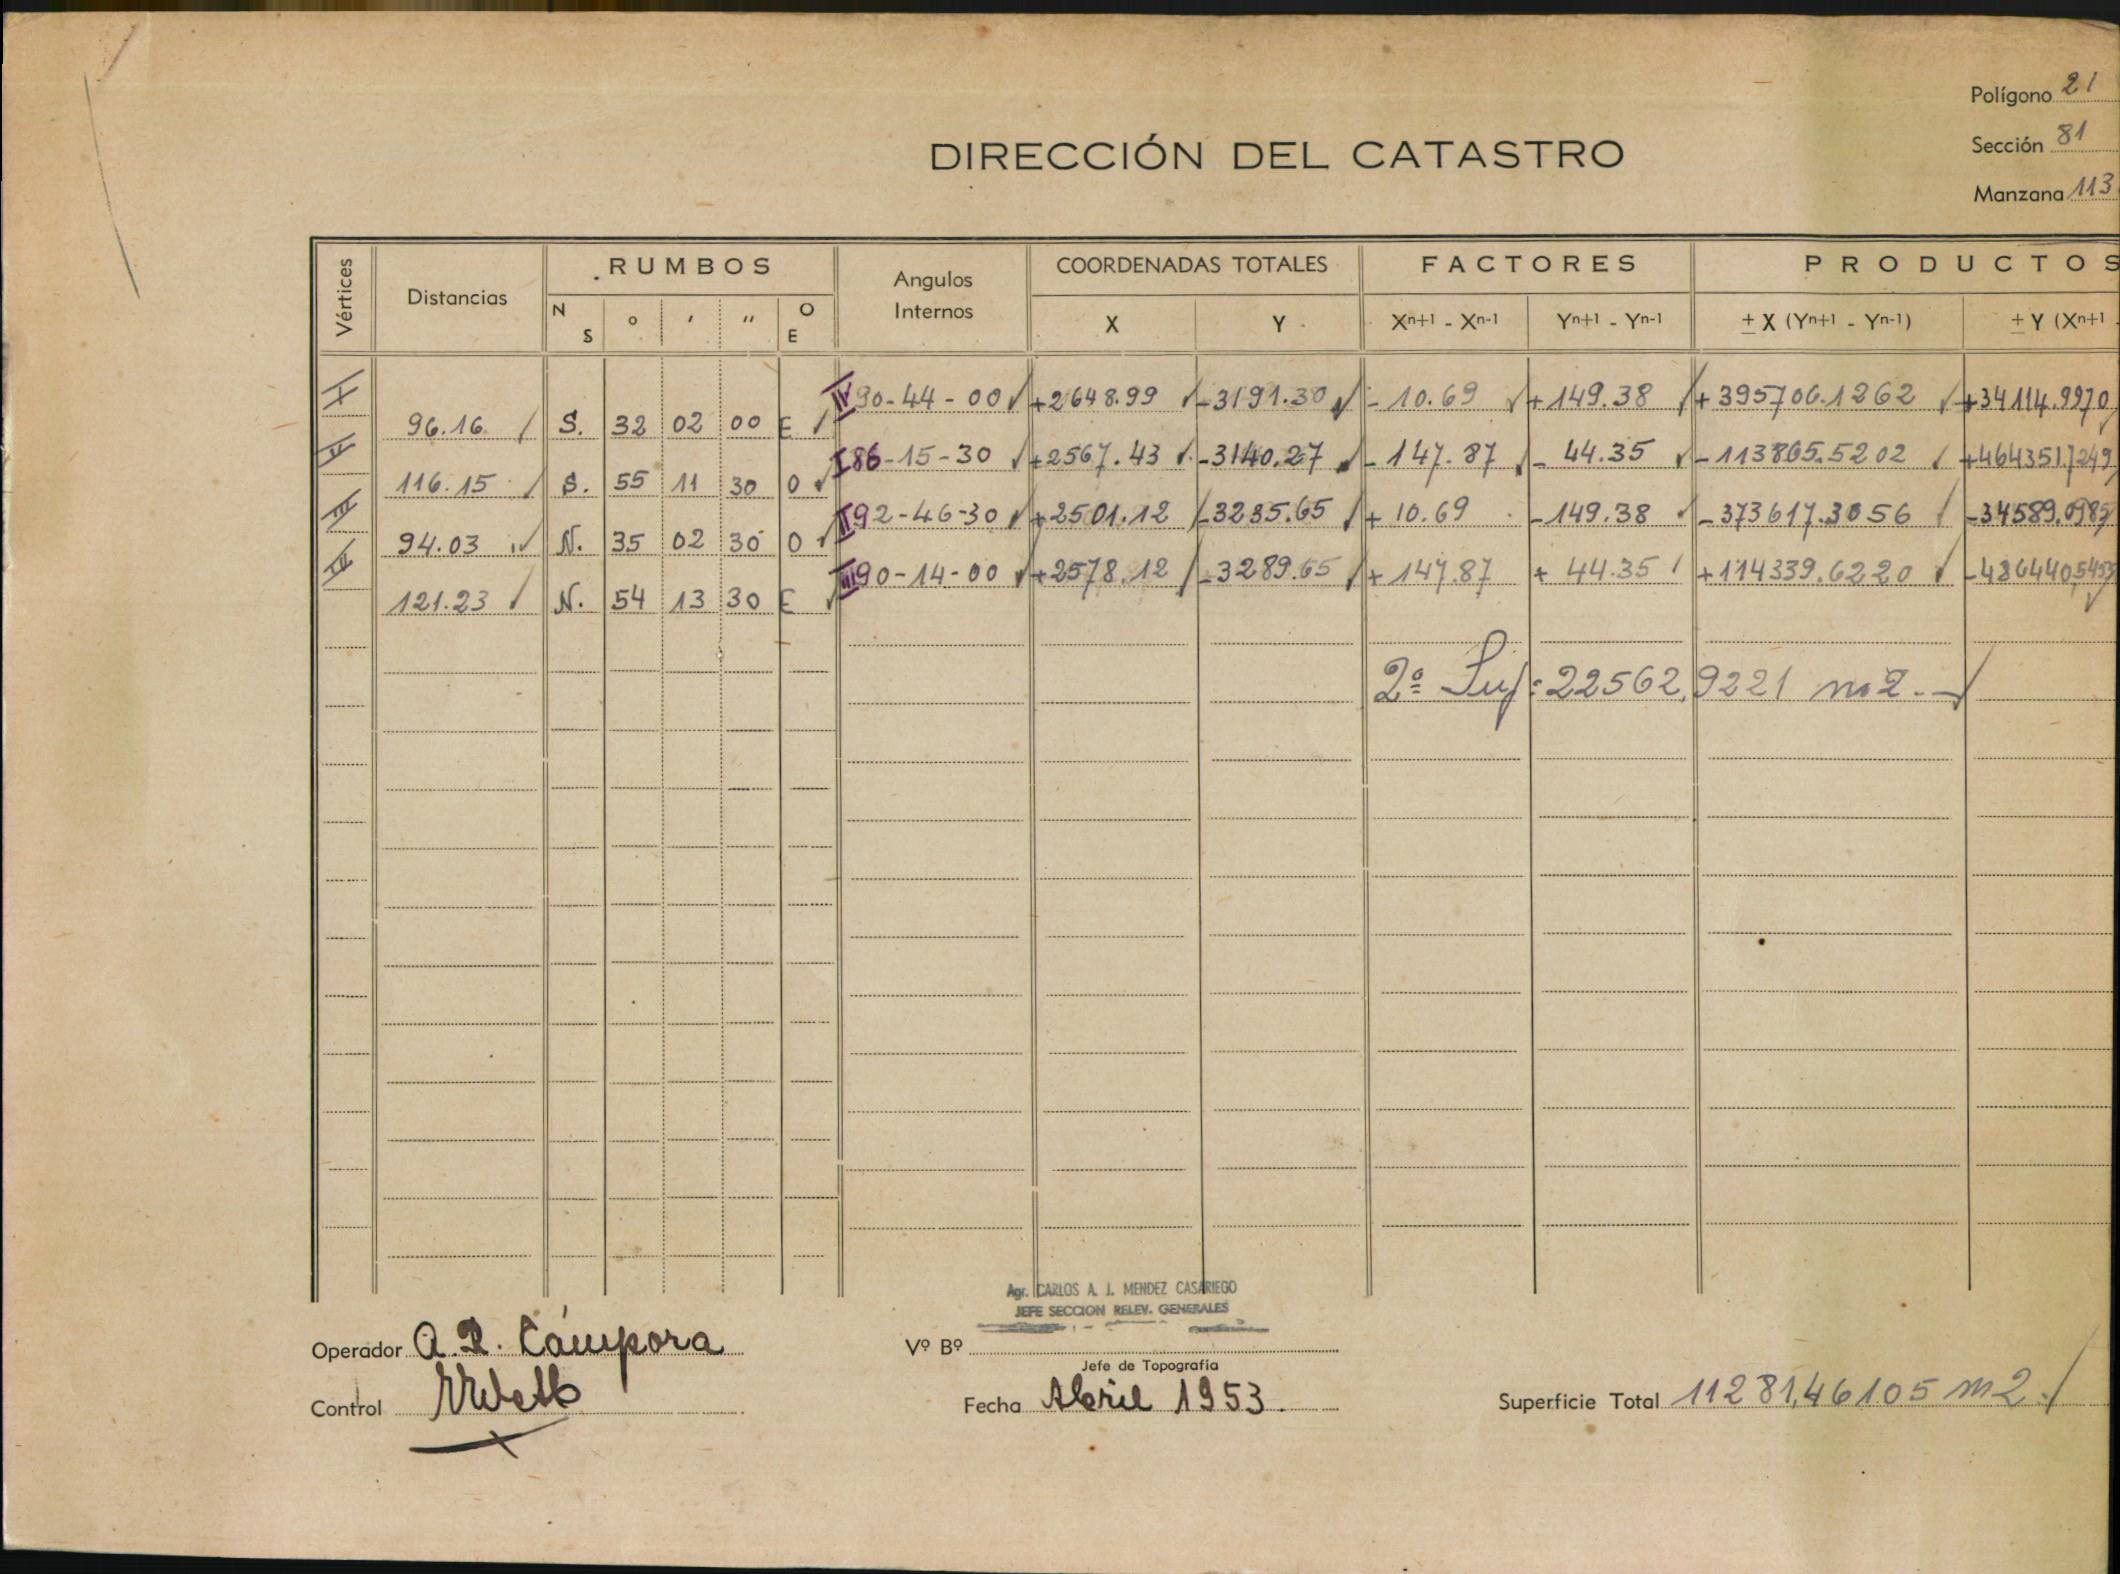 Polígono 21
DIRECCIÓN DEL CATASTRO
Sección 81
Manzana 113
Vértices Distancias RUMBOS Angulos Internos COORDENADAS TOTALES FACTORES PRODUCTOS
N S ° ′ ″ O E X Y Xn+1 - Xn-1 Yn+1 - Yn-1 ± X (Yn+1 - Yn-1) ± Y (Xn+1 -
I IV 90-44-00 +2648.99 -3191.30 - 10.69 +149.38 +395706.1262 +34114.9970
96.16 S. 32 02 00 E
II I 86-15-30 +2567.43 -3140.27 - 147.87 - 44.35 -113865.5202 +464351.7249
116.15 S. 55 11 30 O
III II 92-46-30 +2501.12 -3235.65 + 10.69 -149.38 -373617.3056 -34589.0985
94.03 N. 35 02 30 O
IV III 90-14-00 +2578.12 -3289.65 + 147.87 + 44.35 +114339.6220 -486440.5455
121.23 N. 54 13 30 E
2º Sup: 22562,9221 m2.-
Agr. CARLOS A. J. MENDEZ CASARIEGO
JEFE SECCION RELEV. GENERALES
Operador A. R. Cámpora Vº Bº
Jefe de Topografía
Control Fecha Abril 1953. Superficie Total 11281,46105 m2.